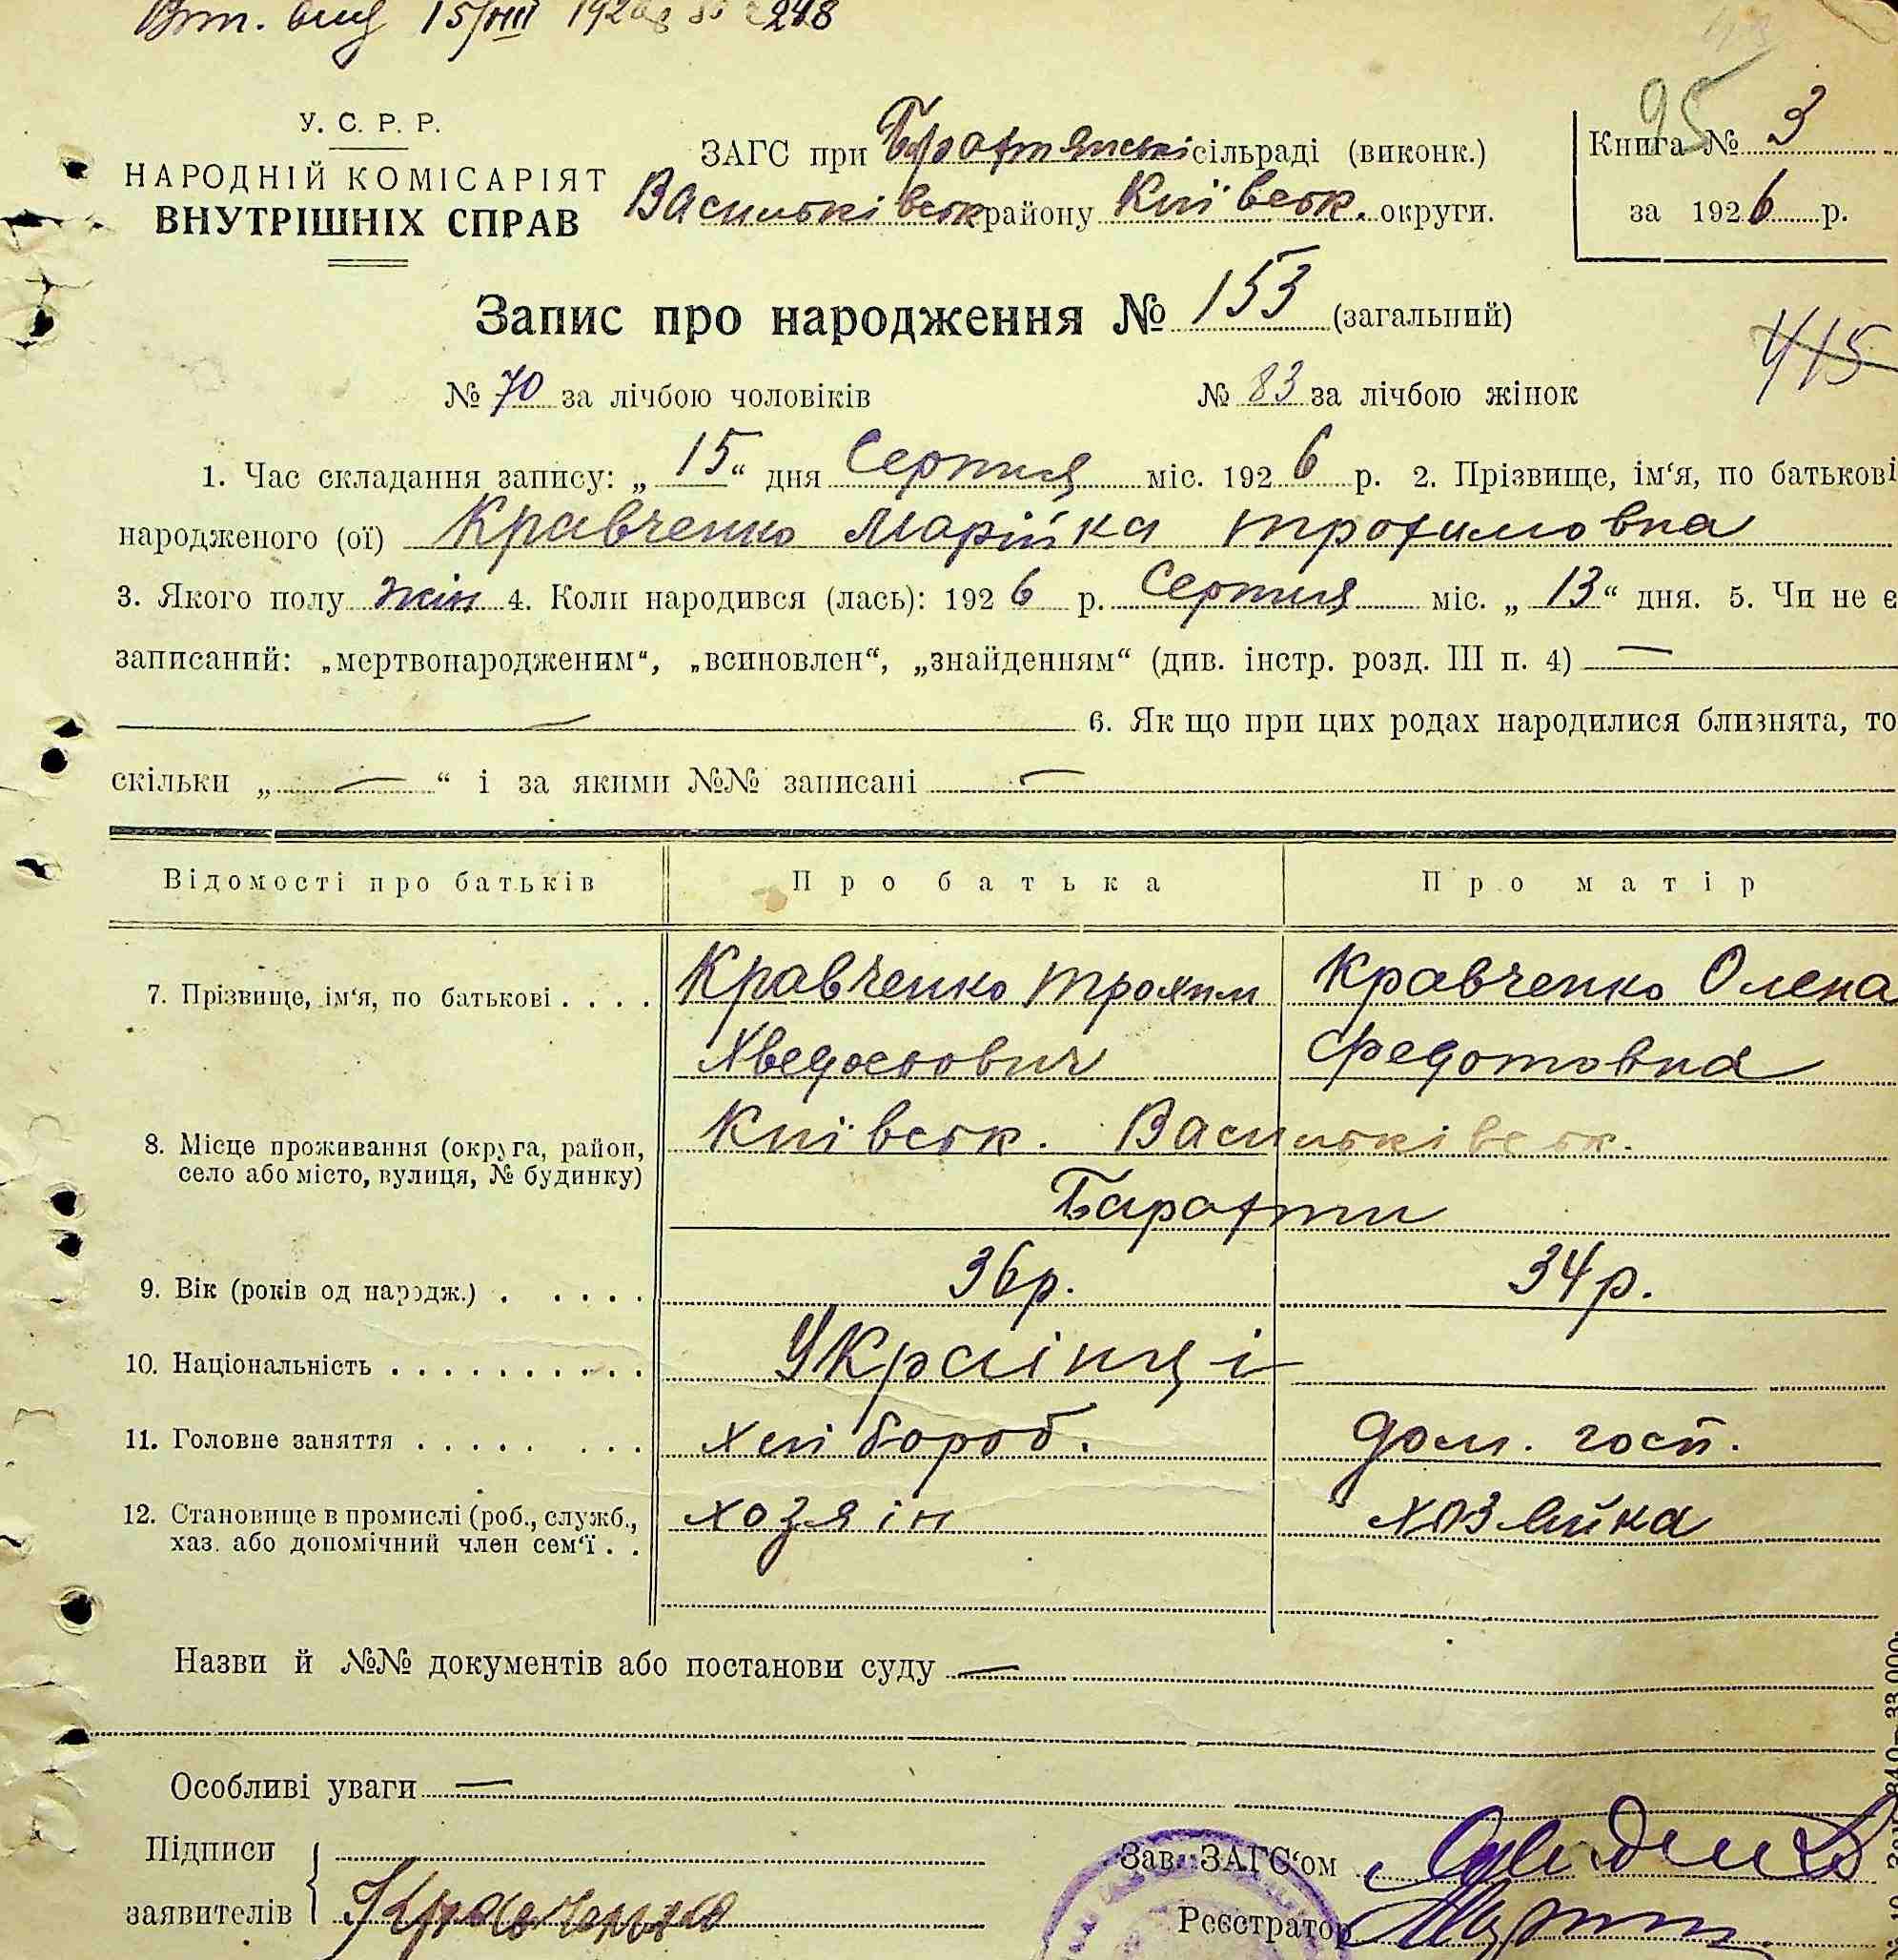 15/VIII 192
У. С. Р. Р.
НАРОДНІЙ КОМІСАРІЯТ
ВНУТРІШНІХ СПРАВ
ЗАГС при сільраді (виконк.)
Васильківськ району Київськ. округи.
95
Книга № 3
за 1926 р.
Запис про народження № 153 (загальний)
415
№ 70 за лічбою чоловіків № 83 за лічбою жінок
1. Час складання запису: „15“ дня Серпня міс. 1926 р. 2. Прізвище, ім‘я, по батькові
народженого (ої) Кравченко Марійка Трофимовна
3. Якого полу жін 4. Коли народився (лась): 1926 р. Серпня міс. „13“ дня. 5. Чи не є
записаний: „мертвонародженим“, „всиновлен“, „знайденням“ (див. інстр. розд. III п. 4) —
— 6. Як що при цих родах народилися близнята, то
скільки „—“ і за якими №№ записані —
Відомості про батьків Про батька Про матір
7. Прізвище, ім‘я, по батькові . . . . Кравченко Трохим Кравченко Олена
Хведосович Федотовна
8. Місце проживання (округа, район, Київськ. Васильківськ.
село або місто, вулиця, № будинку)
9. Вік (років од народж.) . . . . . 36р. 34р.
10. Національність . . . . . . . . . . Українці
11. Головне заняття . . . . . . . . хлібороб. дом. госп.
12. Становище в промислі (роб., служб., хозяін хозяйка
хаз. або допомічний член сем‘ї . .
Назви й №№ документів або постанови суду —
Особливі уваги —
Підписи
заявителів Кравченко
Зав. ЗАГС‘ом
Реєстратор